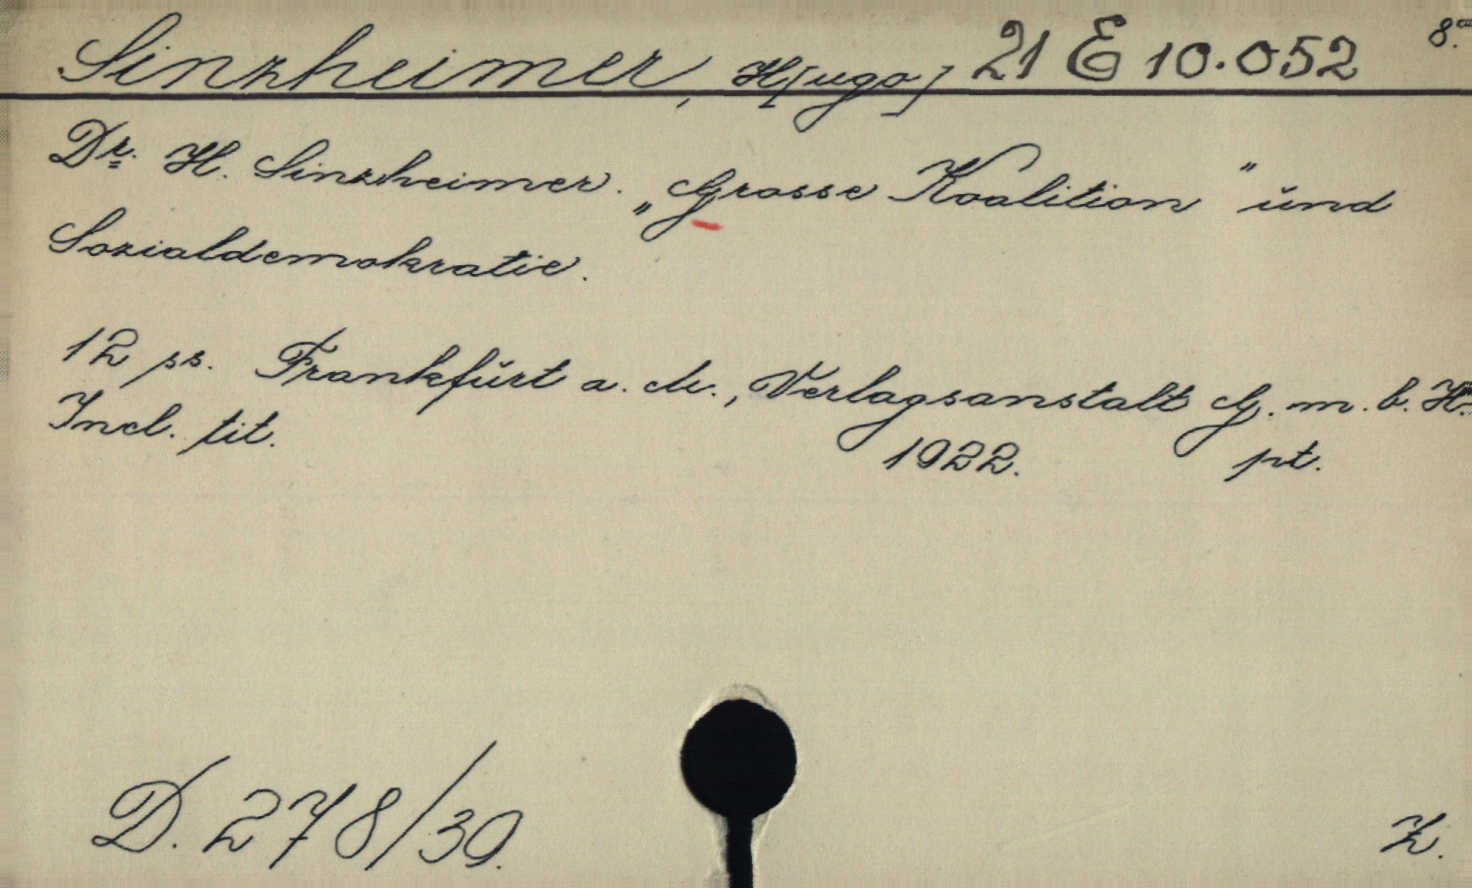 Sinzheimer, H[ugo] 21 E 10.052 8.º
Dr. H. Sinzheimer. „Grosse Koalition" und
Sozialdemokratie.
12 ss. Frankfurt a. M., Verlagsanstalt G. m. b. H.
Incl. tit. 1922. pt.
D. 278/30. Z.